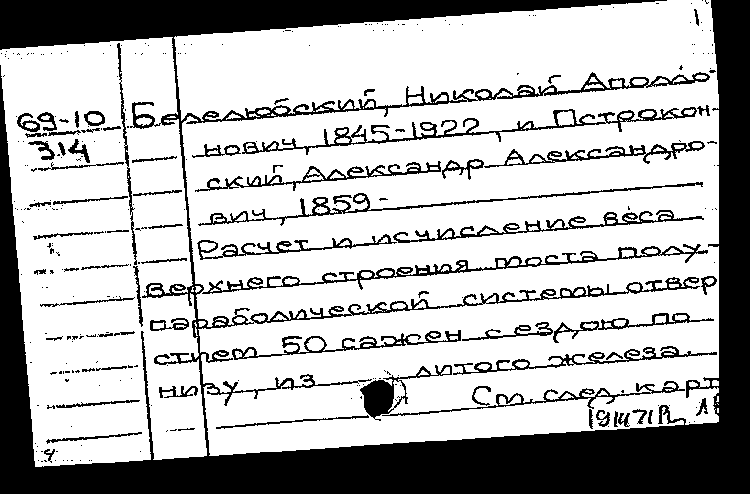 1
69-10 Белелюбский, Николай Аполло-
314 нович, 1845-1922, и Пстрокон-
ский, Александр Александро-
вич, 1859-
Расчет и исчисление веса
верхнего строения моста полу-
параболической системы отвер
стием 50 сажен с ездою по
низу, из литого железа.
См. след. карт